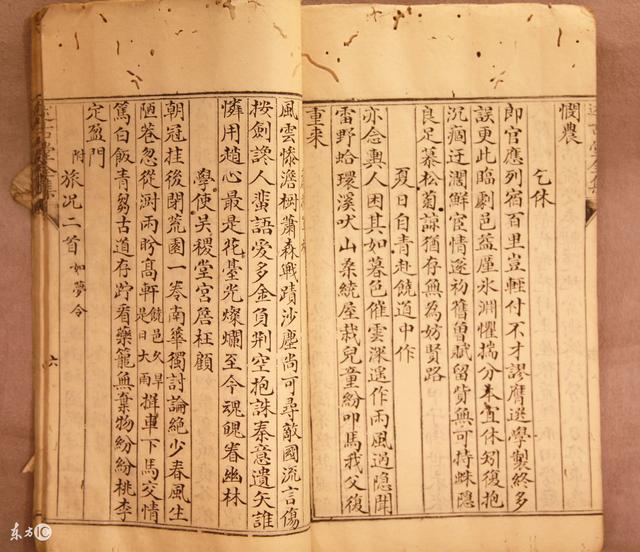 憫農
乞休
即官應列宿百里豈輕付不才謬膺選學製終多
誤更此臨劇邑益厪氷淵懼揣分本宜休矧復抱
沉痼迂濶鮮宦情遂初舊曾賦留貲無可持蛛隱
良足慕松菊諒猶存無為妨賢路
夏日自青赴饒道中作
亦念輿人困其如暮色催雲深遙作雨風過隱聞
雷野蛤環溪吠山桑繞屋栽兒童紛叩馬我父復
重來
風雲慘澹樹蕭森戰蹟沙塵尚可尋敵國流言傷
按劍讒人蜚語愛多金負荆空抱誅秦意遺矢誰
憐用趙心最是花臺光燦爛至今魂魄眷幽林
學使吴稷堂宮詹枉顧
朝冠挂後閉荒園一卷南華獨討論絶少春風生
陋巷忽從澍雨盼高軒饒邑久旱是日大雨撐車下馬交情
篤白飯青芻古道存跨看藥籠無棄物紛紛桃李
定盈門
附旅况二首如夢令
六
东方IC